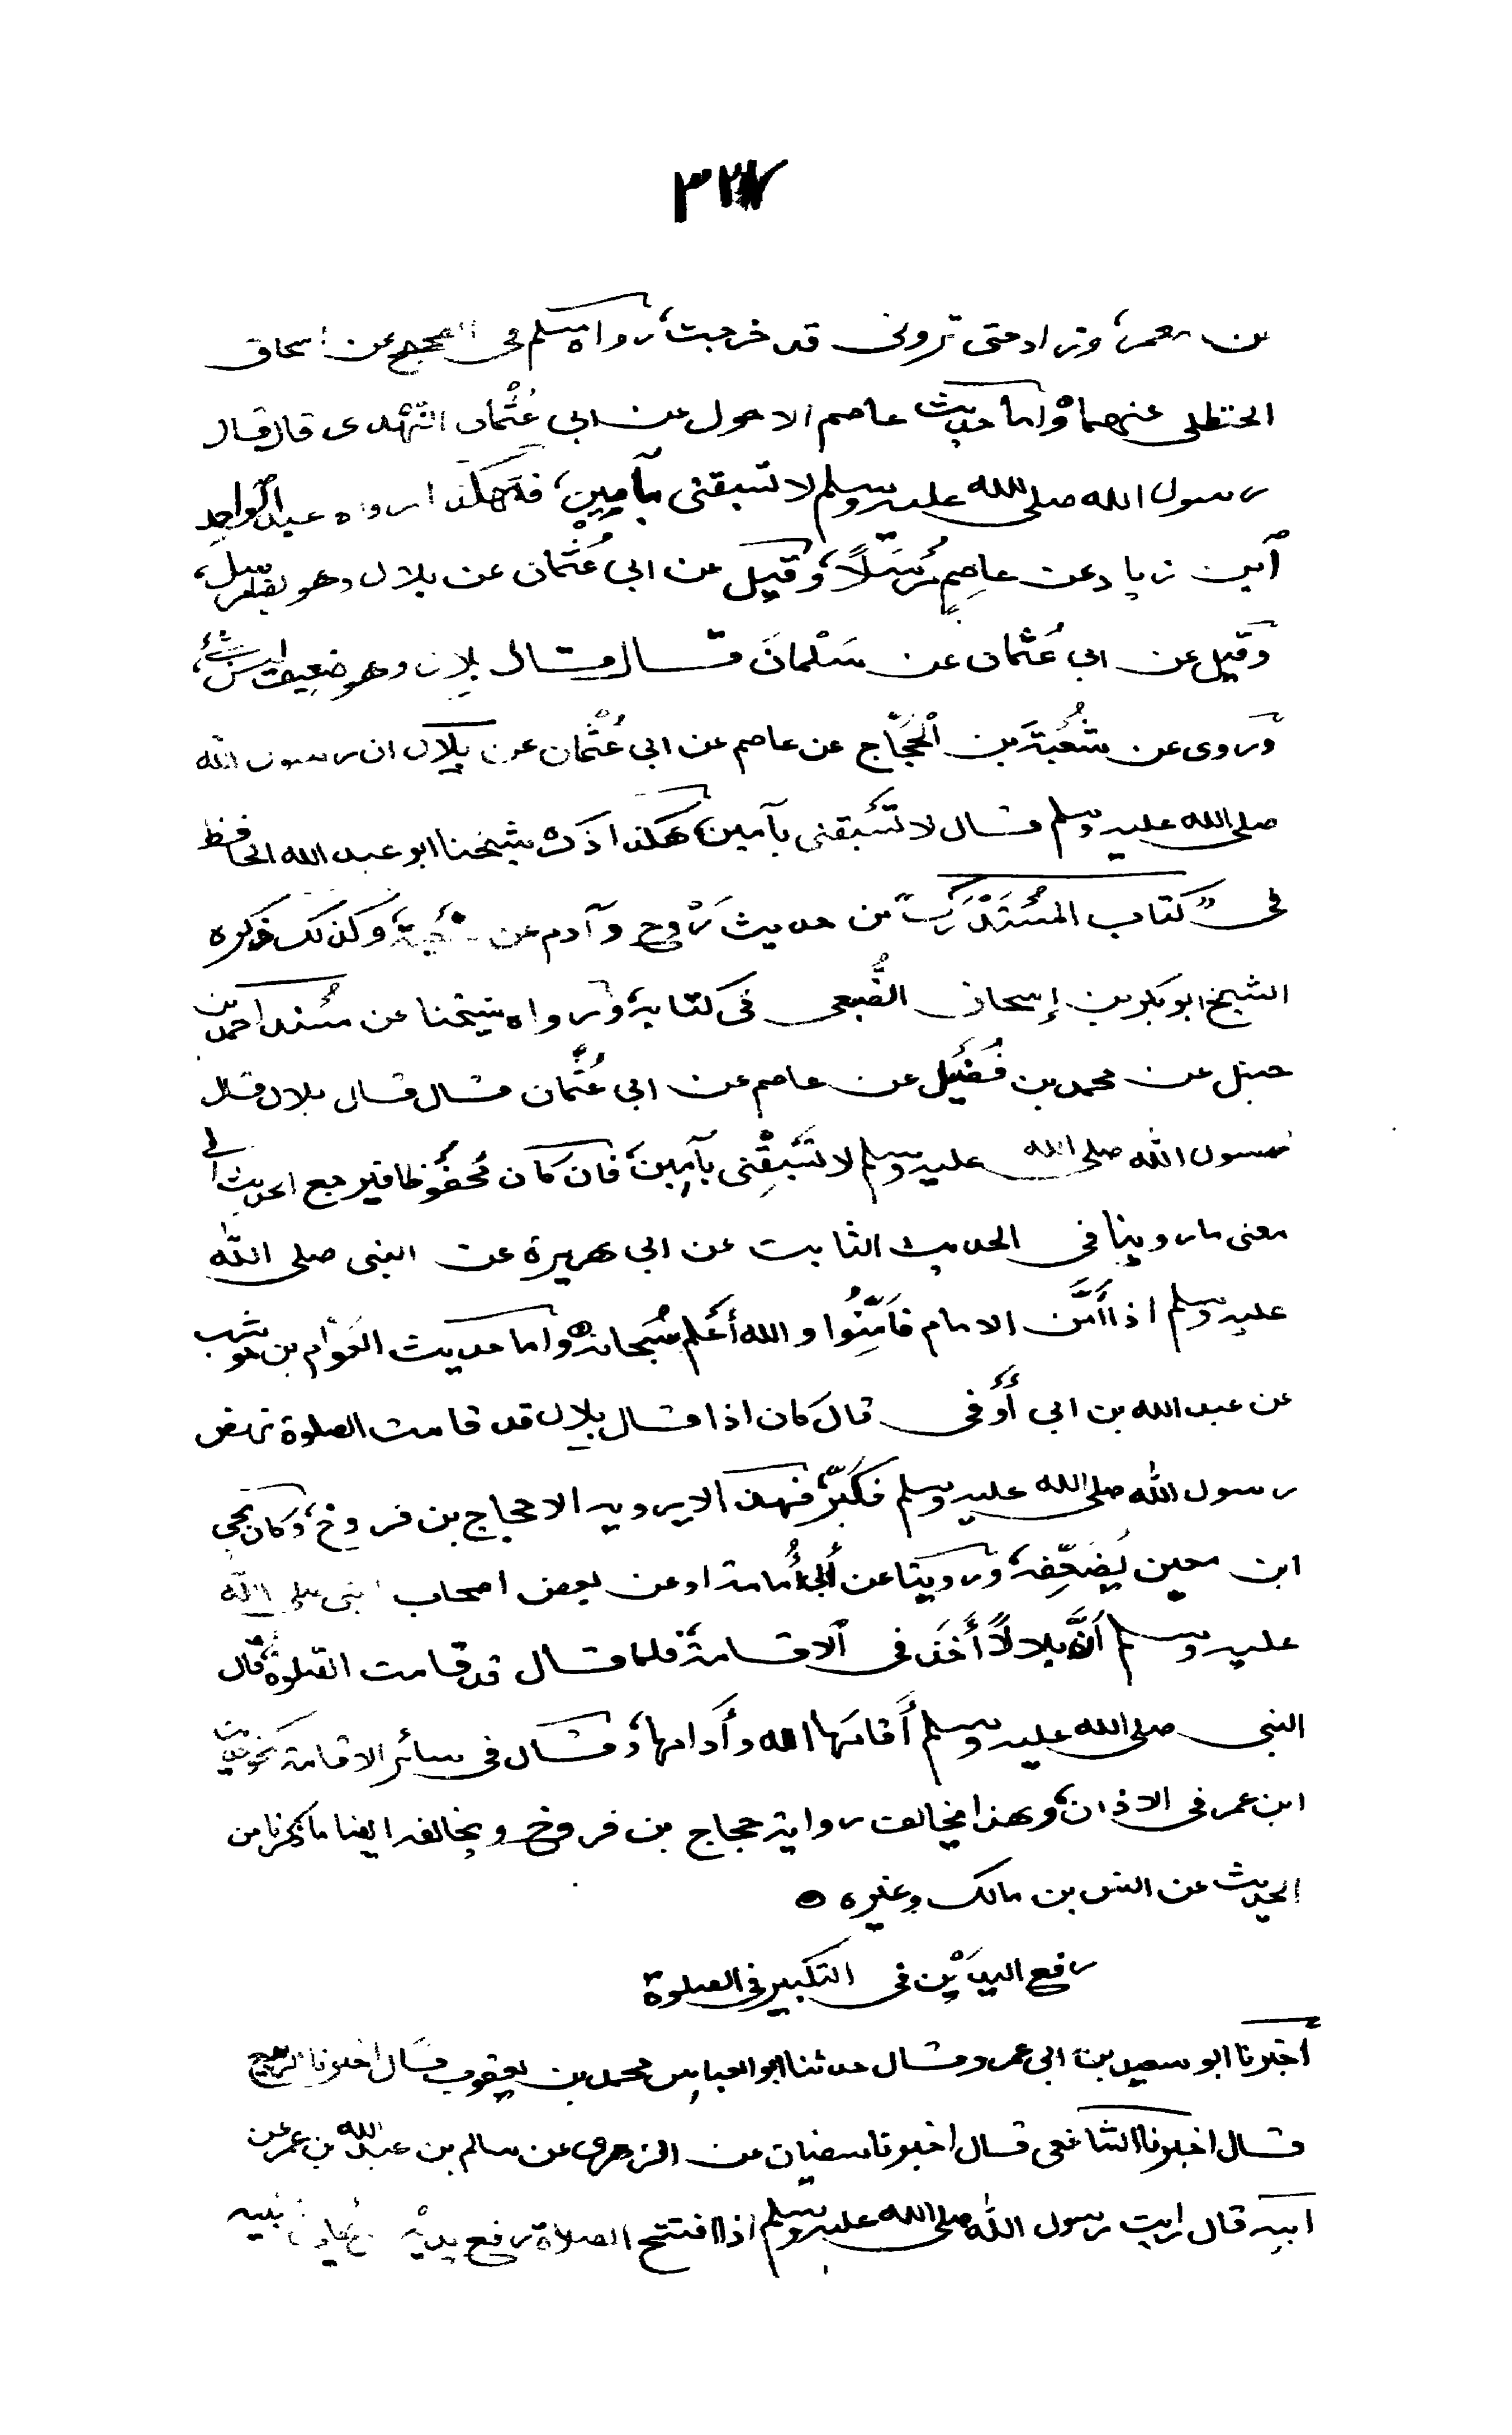 عن معمر، وزاد حتى تروني قد خرجت، رواه مسلم في الصحيح عن اسحاق
الحنظلي عنهما ه واما حديث عاصم الاحول عن ابي عُثْمان النَّهْدى قال قال
رسول الله صلى الله عليه وسلم لا تسبقنى بآمِين، فهكذا رواه عبد الواحِد
ابن زياد عن عاصِم مُرْسَلاً، وقيل عن ابي عُثْمان عن بلال وهو
وقيل عن ابي عُثْمان عن سَلْمانَ قال قال بلال وهو ضعيف ليس بشئ،
وروى عن شُعْبَةَ بن الْحَجّاج عن عاصم عن ابي عُثْمان عن بِلال ان رسول الله
صلى الله عليه وسلم قال لا تَسْبقنى بآمين، هكذا ذكره شيخنا ابو عبد الله الحافظ
فى "كتاب المُسْتَدْرَك" من حديث رَوْح وآدم عن شُعْبة، وكذلك ذكره
الشيخ ابو بكر بن إسحاق الضُّبعى فى كتابه، ورواه شيخنا عن مُسْند احمد بن
حنبل عن محمد بن فُضَيْل عن عاصم عن ابي عُثْمان قال قال بلال قال
رسول الله صلى الله عليه وسلم لا تَسْبِقْنى بآمِين، فان كان مَحْفُوْظا فيرجع الحديث الى
معنى ما روينا فى الحديث الثابت عن ابي هريرة عن النبى صلى الله
عليه وسلم اذا أَمَّن الامام فأَمِّنُوا والله أَعْلم سُبْحانه ه واما حديث العَوّام بن حوشب
عن عبد الله بن ابي أَوْفى قال كان اذا قال بلال قد قامت الصلوة نهض
رسول الله صلى الله عليه وسلم فكَبَّر، فهذا لا يرويه الا حجاج بن فروخ، وكان يحيى
ابن معين يُضَعِّفه، وروينا عن أبي أُمامة او عن بعض اصحاب النبى صلى الله
عليه وسلم أَنَّ بلالاً أَخَذ فى الاقامة، فلما قال قد قامت الصلوة، قال
النبى صلى الله عليه وسلم أَقامها الله وأَدامها، وقال فى سائر الاقامة كنحو حديث
ابن عمر فى الاذان، وهذا يخالف رواية حجاج بن فروخ ويخالفه ايضا ما ذكرنا من
الحديث عن انس بن مالك وغيره ه
رفع اليدَيْن فى التكبير فى الصلوة
أخبرنا ابو سعيد بن ابي عمرو قال حدثنا ابو العباس محمد بن يعقوب قال اخبرنا الربيع
قال اخبرنا الشافعى قال اخبرنا سفيان عن الزهرى عن سالم بن عبد الله بن عمر عن
ابيه قال رايت رسول الله صلى الله عليه وسلم اذا افتتح الصلاة رفع يديْه